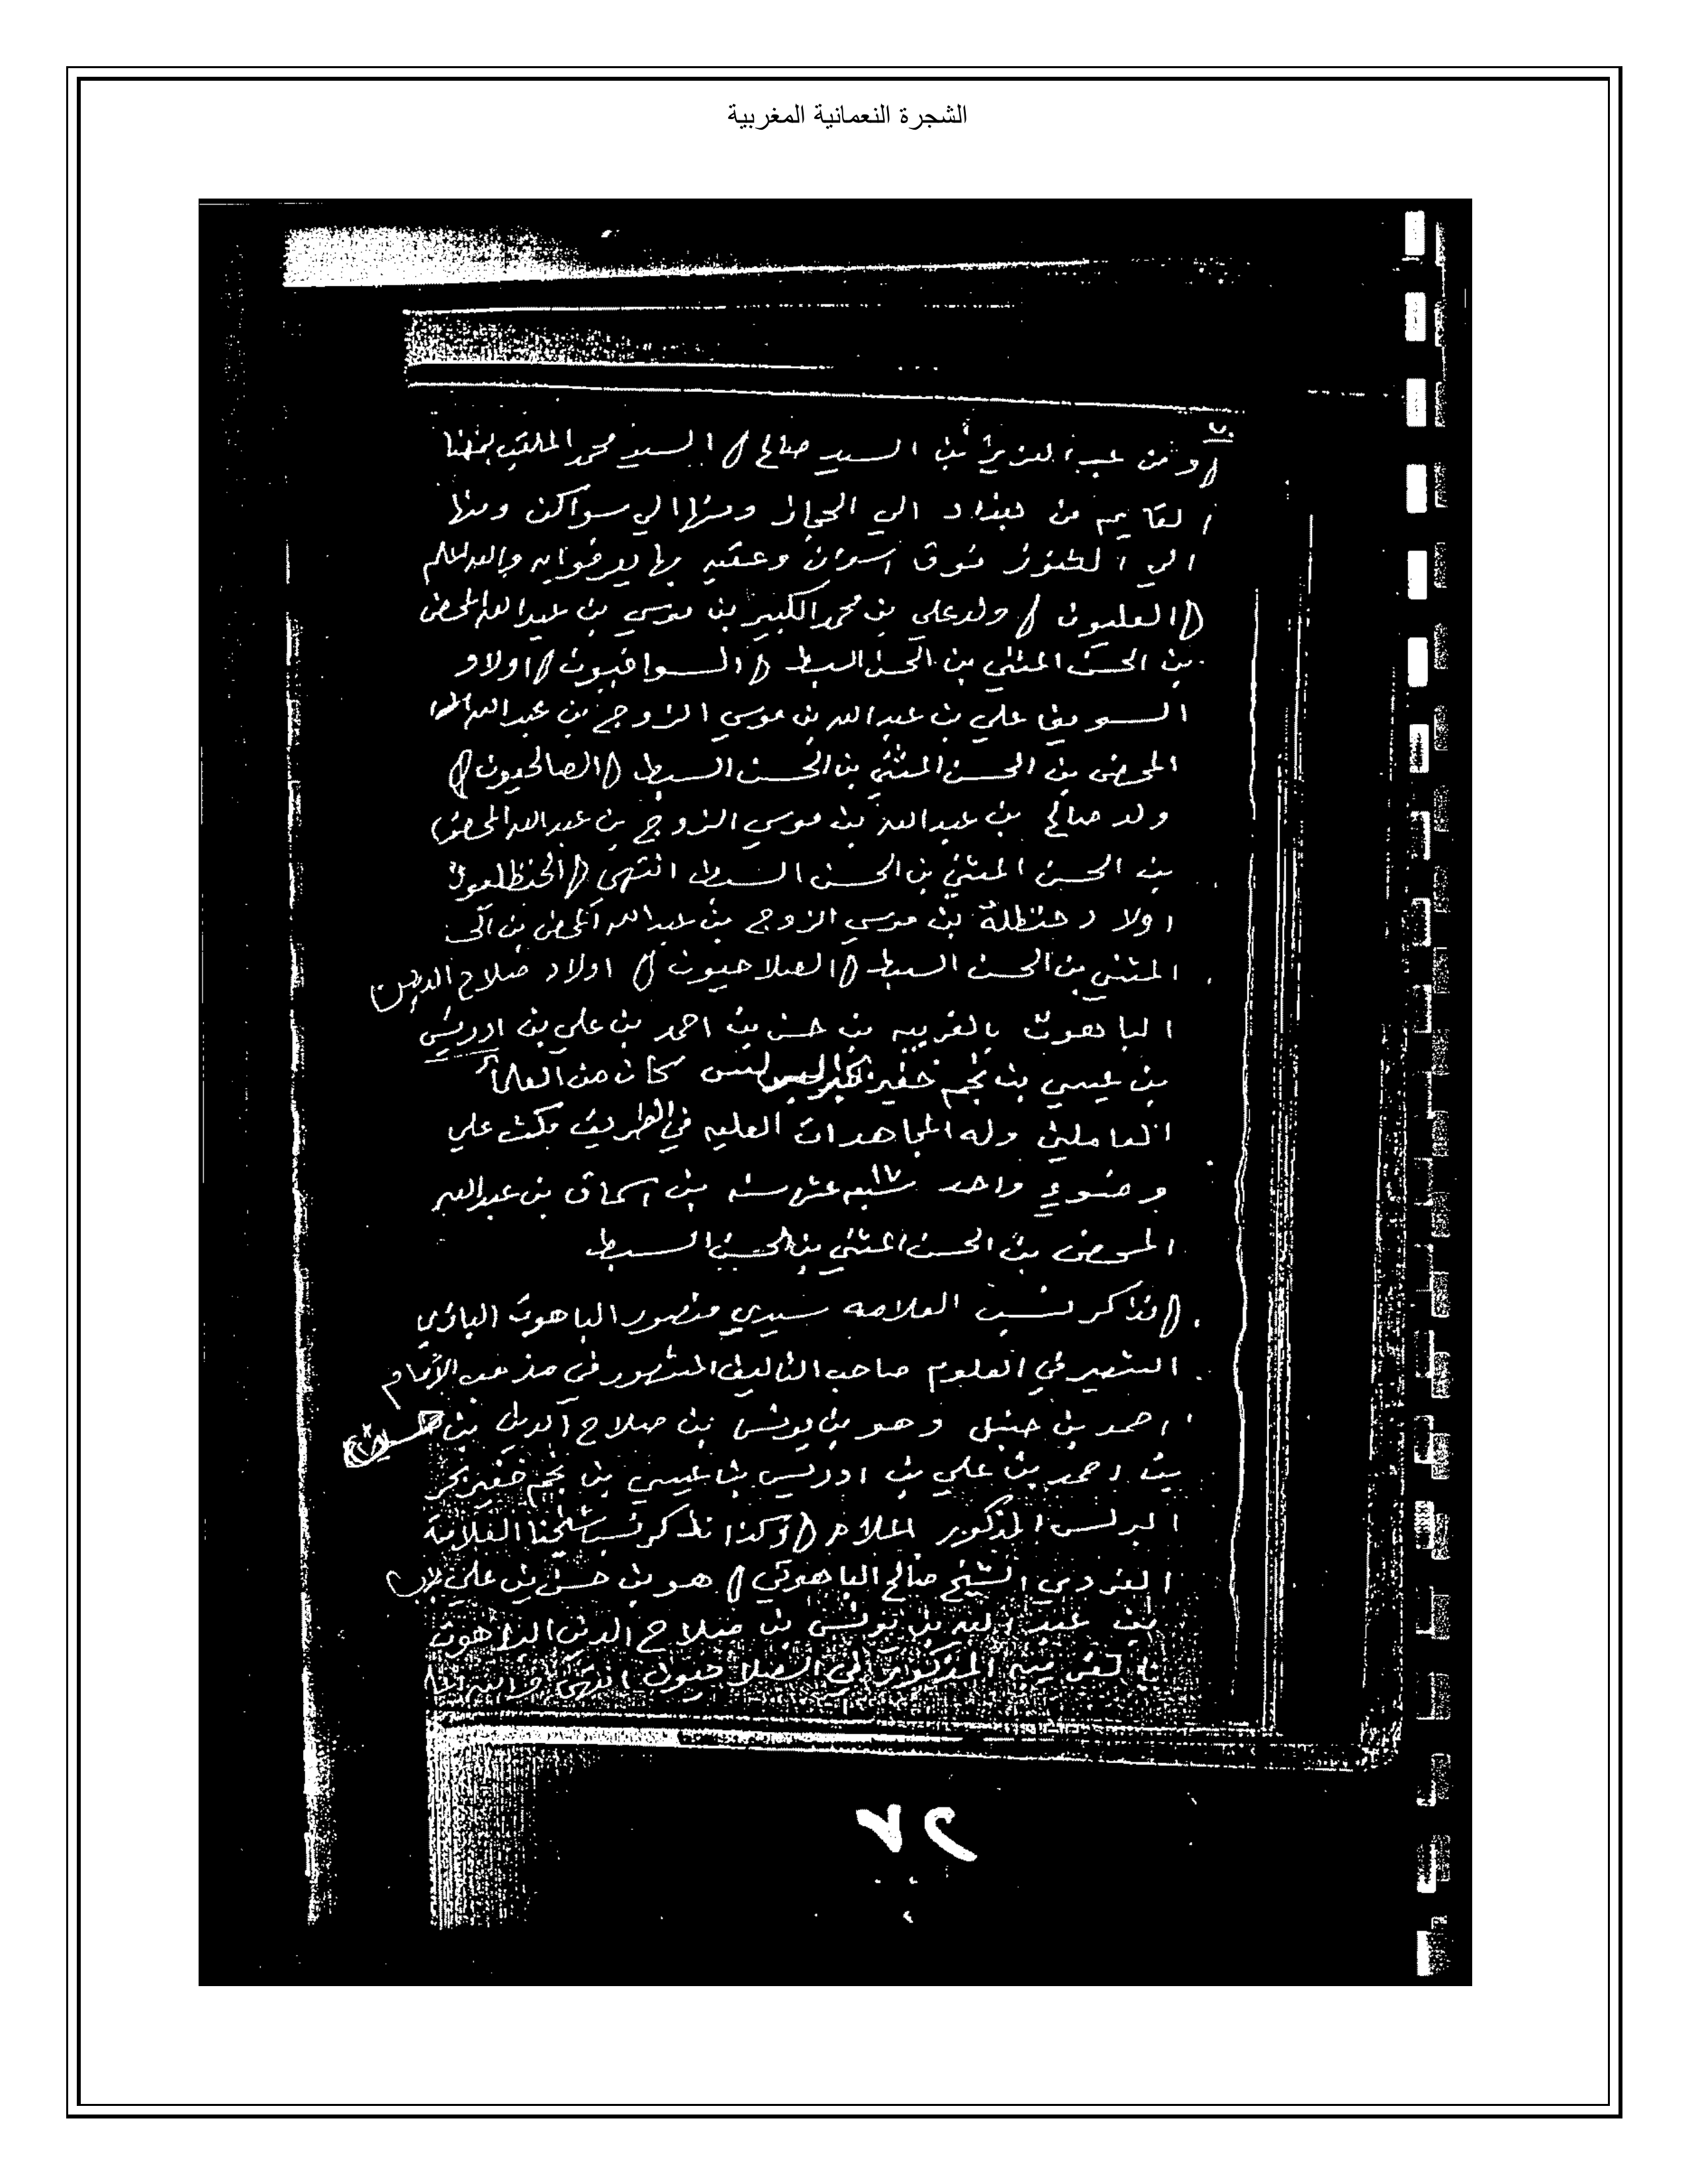 الشجرة النعمانية المغربية
ومن عبد العزيز بن السيد صالح السيد محمد الملقب بمهنا
القايم من بغداد الي الحجاز ومنها الي سواكن ومنها
الي الكنوز فوق اسوان وعقبه بها يعرفوا به والله اعلم
العليون ولد علي بن محمد الكبير بن موسي بن عبد الله المحض
بن الحسن المثني بن الحسن السبط اولاد
السويق علي بن عبد الله بن موسي الزوج بن عبد الله
المحض بن الحسن المثني بن الحسن السبط (الصالحيون)
ولد صالح بن عبد الله بن موسي الزوج بن عبد الله المحض
بن الحسن المثني بن الحسن السبط انتهي الحنظليون
اولاد حنظلة بن موسي الزوج بن عبد الله المحض بن
المثني بن الحسن السبط (الصلاحيون) اولاد صلاح الدين
الباهوت بالغربيه بن حسن بن احمد بن علي بن ادريس
بن عيسي بن نجم خفير كان من العلماء
العاملين وله المجاهدات العليه في الطريق مكث علي
وضوء واحد ١٧ سبعه عشر سنه بن اسحاق بن عبد الله
المحض بن الحسن المثني بن الحسن السبط
نذكر نسب العلامه سيدي منصور الباهوت
الشهير في العلوم صاحب التاليف المشهور في مذهب الإمام
احمد بن حنبل وهو بن يونس بن صلاح الدين بن حسن
بن احمد بن علي بن ادريس بن عيسي بن نجم خفير بحر
البرلس المذكور وكذا نذكر نسب شيخنا العلامة
الشيخ صالح الباهوتي هو بن حسن بن علي
بن عبد الله بن يونس بن صلاح الدين الباهوت
بالغربيه المذكور في الصلاحيون انتهي والله اعلم
٢٢